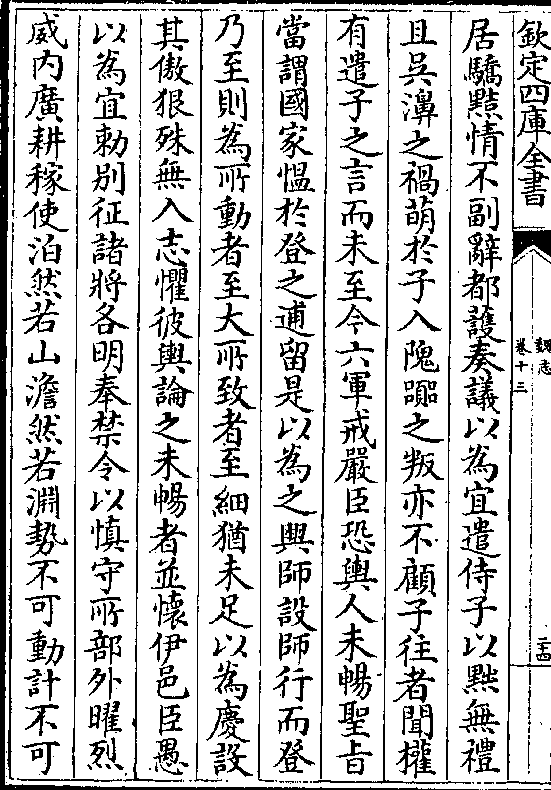 欽定四庫全書
魏志
卷十三
二十四
居驕黠情不副辭都護奏議以為宜遣侍子以黜無禮
且吳濞之禍萌於子入隗囂之叛亦不顧子往者聞權
有遣子之言而未至今六軍戒嚴臣恐輿人未暢聖旨
當謂國家愠於登之逋留是以為之興師設師行而登
乃至則為所動者至大所致者至細猶未足以為慶設
其傲狠殊無入志懼彼輿論之未暢者並懷伊邑臣愚
以為宜勅别征諸將各明奉禁令以慎守所部外曜烈
威内廣耕稼使泊然若山澹然若淵勢不可動計不可